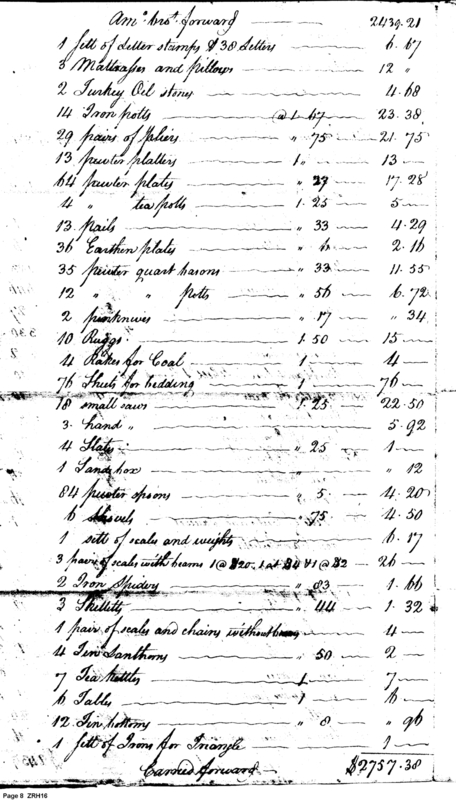 Amt brot forward 2439.21
1 sett of Letter stamps & 38 Letters 6.67
3 Mattrasses and pillows 12 "
2 Turkey Oil stones 4.68
14 Iron potts @ 1.67 23.38
29 pairs of Pliers " 75 21.75
13 pewter platters 1 " 13
64 pewter plates " 27 17.28
4 " tea potts 1.25 5
13 pails " 33 4.29
36 Earthen plates " 6 2.16
35 pewter quart basons " 33 11.55
12 " " potts " 56 6.72
2 penknives " 17 " 34
10 Ruggs 1.50 15
4 Rakes for Coal 1 4
76 Sheets for bedding 1 76
18 small saws 1.25 22.50
3 hand " 5.92
4 Slates " 25 1
1 Sand box " " 12
84 pewter spoons " 5 4.20
6 Shovels " 75 4.50
1 sett of scales and weights 6.17
3 pairs of scales with beams 1 @ $20. 1 at $4 & 1 @ $2 26
2 Iron Spiders " 83 1.66
3 Skilletts " 44 1.32
1 pair of scales and chains without beams 4
4 Tin Lanthorns " 50 2
7 Tea kettles 1 7
6 Tables 1 6
12 Tin bottoms " 8 " 96
1 sett of Irons for Triangle 1
Carried forward $2757.38
Page 8 ZRH16